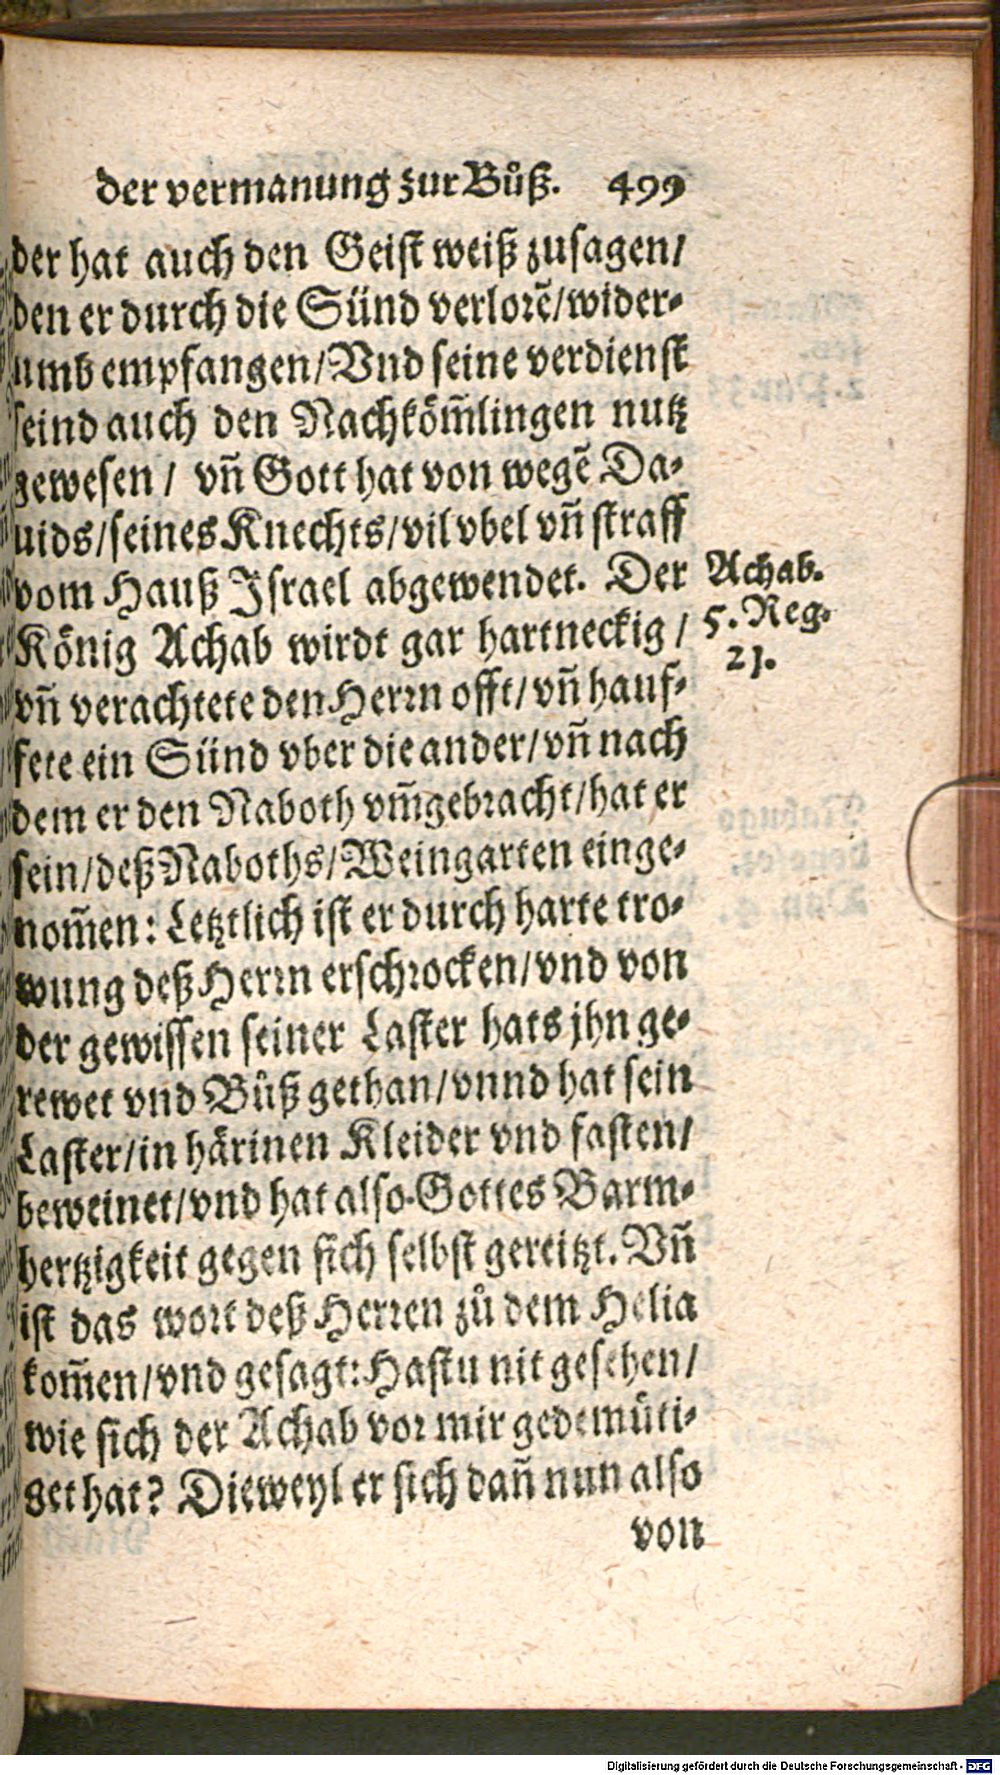 der vermanung zur Bůß. 499
der hat auch den Geist weiß zusagen/
den er durch die Sünd verlorẽ/wider-
umb empfangen/Vnd seine verdienst
seind auch den Nachköm̃lingen nutz
gewesen/ vñ Gott hat von wegẽ Da-
uids/seines Knechts/vil vbel vñ straff
vom Hauß Israel abgewendet. Der
König Achab wirdt gar hartneckig/
vñ verachtete den Herrn offt/vñ hauf-
fete ein Sünd vber die ander/vñ nach
dem er den Naboth vm̃gebracht/hat er
sein/deß Naboths/Weingarten einge-
nom̃en: Letztlich ist er durch harte tro-
wung deß Herrn erschrocken/vnd von
der gewissen seiner Laster hats jhn ge-
rewet vnd Bůß gethan/vnnd hat sein
Laster/in härinen Kleider vnd fasten/
beweinet/vnd hat also Gottes Barm-
hertzigkeit gegen sich selbst gereitzt. Vñ
ist das wort deß Herren zů dem Helia
kom̃en/vnd gesagt: Hastu nit gesehen/
wie sich der Achab vor mir gedemüti-
get hat? Dieweyl er sich dañ nun also
von
Achab.
5. Reg.
21.
Digitalisierung gefördert durch die Deutsche Forschungsgemeinschaft - DFG